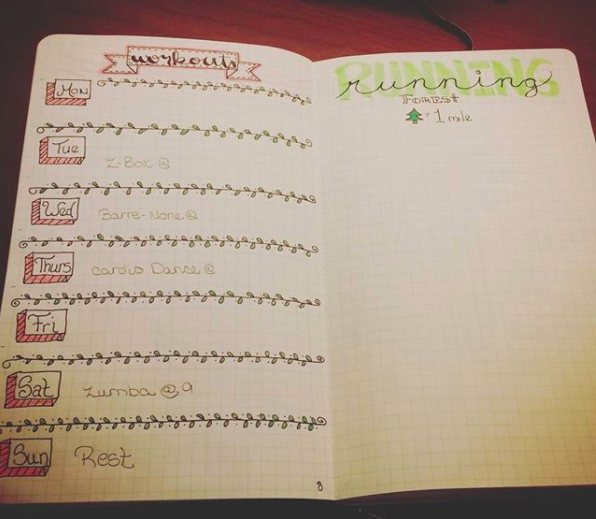 workouts
Mon
Tue
Z-Box @
Wed
Barre-None @
Thurs
cardio Dance @
Fri
Sat
Zumba @ 9
Sun
Rest
8
RUNNING
running
FOREST
= 1 mile